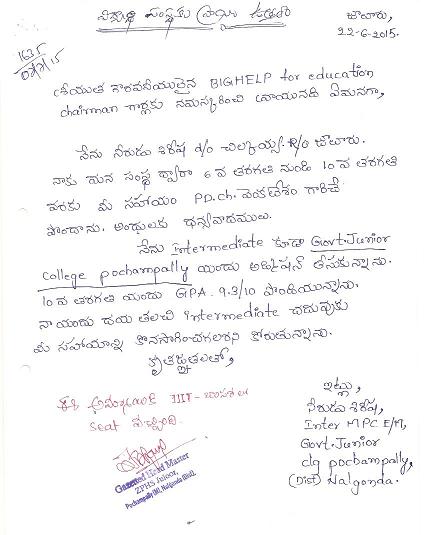 విద్యార్థి సంస్థకు వ్రాయు ఉత్తరం
జూలూరు,
22-6-2015.
1635
శ్రీయుత గౌరవనీయులైన BIGHELP for education
chairman గార్లకు నమస్కరించి వ్రాయునది ఏమనగా,
నేను నీరుడు శిరీష d/o చిలకయ్య R/o జూలూరు.
నాకు మన సంస్థ ద్వారా 6వ తరగతి నుండి 10వ తరగతి
వరకు మీ సహాయం P.D.ch. వెంకటేశం గారిచే
పొందాను. అందులకు ధన్యవాదములు.
నేను Intermediate కూడా Govt. Junior
College pochampally యందు అడ్మిషన్ తీసుకున్నాను.
10వ తరగతి యందు GPA. 9.3/10 పొందియున్నాను.
నా యందు దయ తలచి intermediate చదువుకు
మీ సహాయాన్ని కొనసాగించగలరని కోరుతున్నాను.
కృతజ్ఞతలతో,
ఈ అమ్మాయికి IIIT - బాసరలో
seat వచ్చింది.
ఇట్లు,
నీరుడు శిరీష,
Inter MPC E/M,
Govt. Junior
clg pochampally,
(Dist) Nalgonda.
Gazetted Head Master
ZPHS Juloor,
Pochampally (M), Nalgonda (Dist).